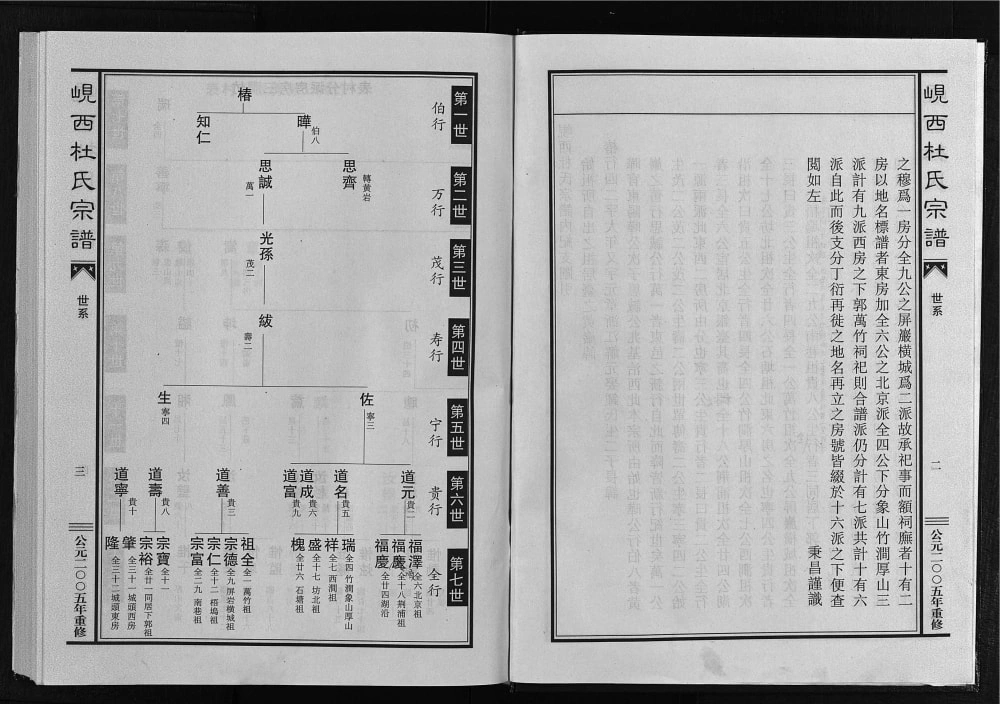 峴西杜氏宗譜
世系
二
公元二〇〇五年重修
之穆爲一房分全九公之屏巖橫城爲二派故承祀事而額祠廡者十有二
房以地名標譜者東房加全六公之北京派全四公下分象山竹澗厚山三
派計有九派西房之下郭萬竹祠祀則合譜派仍分計有七派共計十有六
派自此而後支分丁衍再徙之地名再立之房號皆綴於十六派之下便查
閲如左
秉昌謹識
第一世
伯行
椿
曄
伯八
知仁
第二世
万行
思齊
轉黃岩
思誠
萬一
第三世
茂行
光孫
茂二
第四世
寿行
紱
壽二
第五世
宁行
佐
寧三
生
寧四
第六世
贵行
道元
貴二
道名
貴五
道成
貴六
道富
貴九
道善
貴三
道壽
貴八
道寧
貴十
第七世
全行
福澤
全六北京祖
福慶
全十八荆浦祖
福慶
全廿四湖沿
瑞
全四 竹澗象山厚山
祥
全七 西澗祖
盛
全十七 坊北祖
槐
全廿六 石塘祖
祖全
全一 萬竹祖
宗德
全九 屏岩橫城祖
宗仁
全十二 梧塢祖
宗富
全二九 南巷祖
宗寶
全十一
宗裕
全廿 同居下郭祖
肇
全三十一 城頭西房
隆
全三十二 城頭東房
峴西杜氏宗譜
世系
三
公元二〇〇五年重修